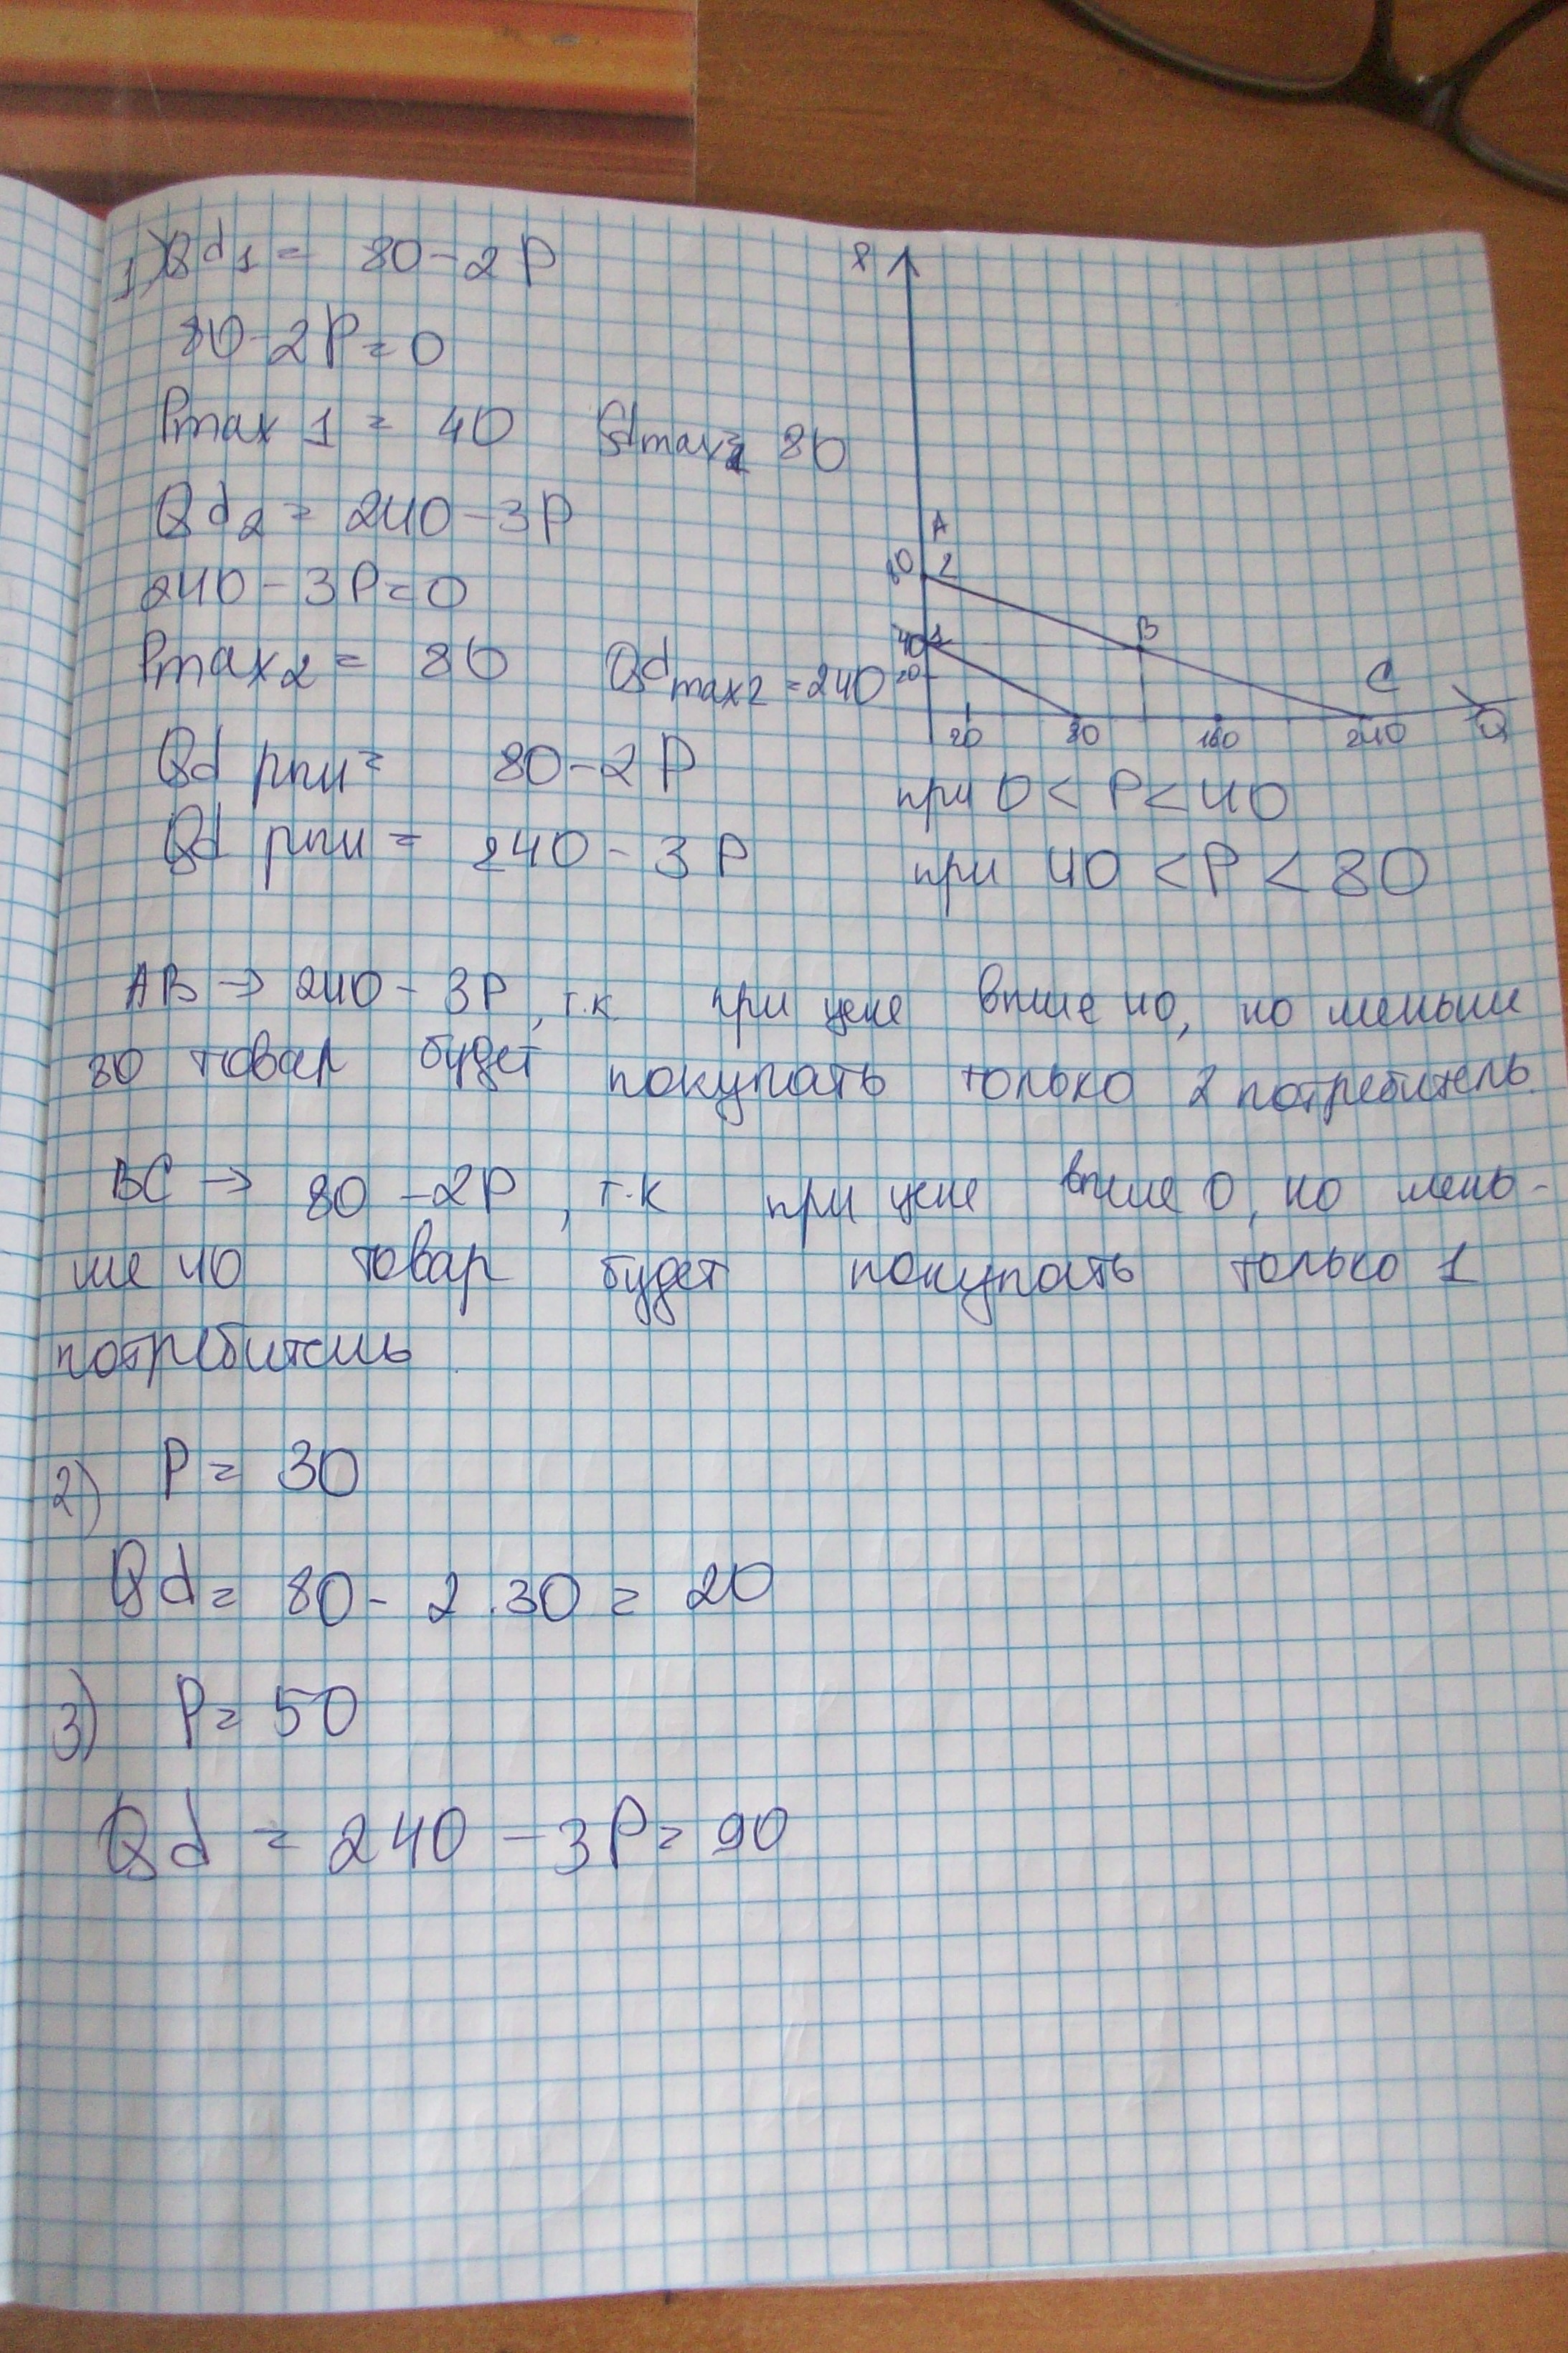 1) Qd1 = 80-2P
80-2P=0
Pmax 1 = 40 Qdmax1 80
Qd2 = 240-3P
240-3P=0
Pmax2 = 80 Qdmax2 =240
P
A
80 2
40 1
20
B
C
20 80 160 240 Q
Qd рпи = 80-2P при 0<P<40
Qd рпи = 240-3P при 40 <P<80
AB → 240-3P, т.к. при цене выше 40, но меньше
80 товар будет покупать только 2 потребитель.
BC → 80-2P, т.к при цене выше 0, но мень-
ше 40 товар будет покупать только 1
потребитель.
2) P= 30
Qd= 80- 2.30 = 20
3) P= 50
Qd = 240-3P= 90